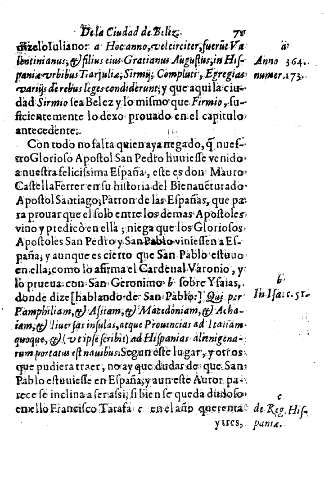 De la Ciudad de Belez. 7
dizelo Iuliano: a Hoc anno, vel circiter, fuerũt Va
lentinianus, & filius eius Gratianus Augustus, in His
paniæ vrbibus Tiarjulia, Sirmij, Compluti, Egregias
varijs de rebus leges condiderunt; y que aquila ciu-
dad Sirmio sea Belez y lo mismo que Firmio, su-
ficientemente lo dexo prouado en el capitulo
antecedente.
Con todo no falta quien aya negado, q̃ nues-
tro Glorioso Apostol San Pedro huuiesse venido
a nuestra felicissima España, este es don Mauro
Castella Ferrer en su historia del Bienauẽturado
Apostol Santiago; Patron de las Españas, que pa
ra prouar que el solo entre los demas Apostoles
vino y predicò en ella; niega que los Gloriosos
Apostoles San Pedro y San Pablo viniessen a Es-
paña; y aunque es cierto que San Pablo estuuo
en ella; como lo afirma el Cardenal Varonio, y lo
prueua con San Geronimo b sobre Ysaias,
donde dize [hablando de San Pablo:] Qui per
Pamphiliam, & Asiam, & Mazedoniam, & Acha-
iam, & diuersas insulas, atque Prouincias ad Italiam
quoque, & (vt ipse scribit) ad Hispanias alienigena-
rum portatus est nauibus. Segun este lugar, y otros
que pudiera traer, no ay que dudar que San
Pablo estuuiesse en España; y aun este Autor pa-
rece se inclina a ser assi; si bien se queda dudoso
en ello Francisco Tarafa c en el año quarenta
y tres,
a
Anno 364.
numer. 173.
b
In Isa. c. 51.
c
de Reg. His-
paniæ.